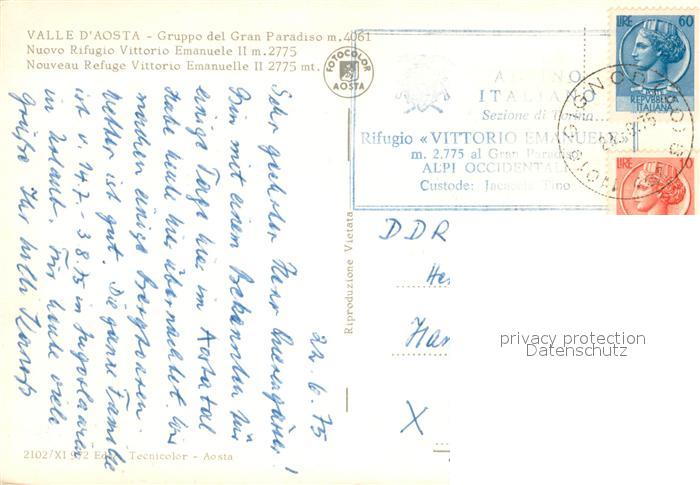 VALLE D'AOSTA - Gruppo del Gran Paradiso m. 4061
Nuovo Rifugio Vittorio Emanuele II m. 2775
Nouveau Refuge Vittorio Emanuelle II 2775 mt.
FOTOCOLOR
AOSTA
ALPINO
ITALIANO
Sezione di Torino
Rifugio «VITTORIO EMANUELE
m. 2.775 al Gran Paradiso
ALPI OCCIDENTALI
Custode: Jacaccia Tino
LIRE 60
REPVBBLICA
ITALIANA
LIRE 10
22.6.75
Sehr geehrter Herr
Bin mit einem Bekannten für
einige Tage hier im Aostatal
habe heut hier übernachtet. Wir
machen einige Bergtouren.
Wetter ist gut. Die ganze Familie
ist v. 14.7. - 3.8.75 in Jugoslawien
in Urlaub. Für heute viele
Grüße Ihr
Riproduzione Vietata
DDR
X
privacy protection
Datenschutz
2102/XI Tecnicolor - Aosta